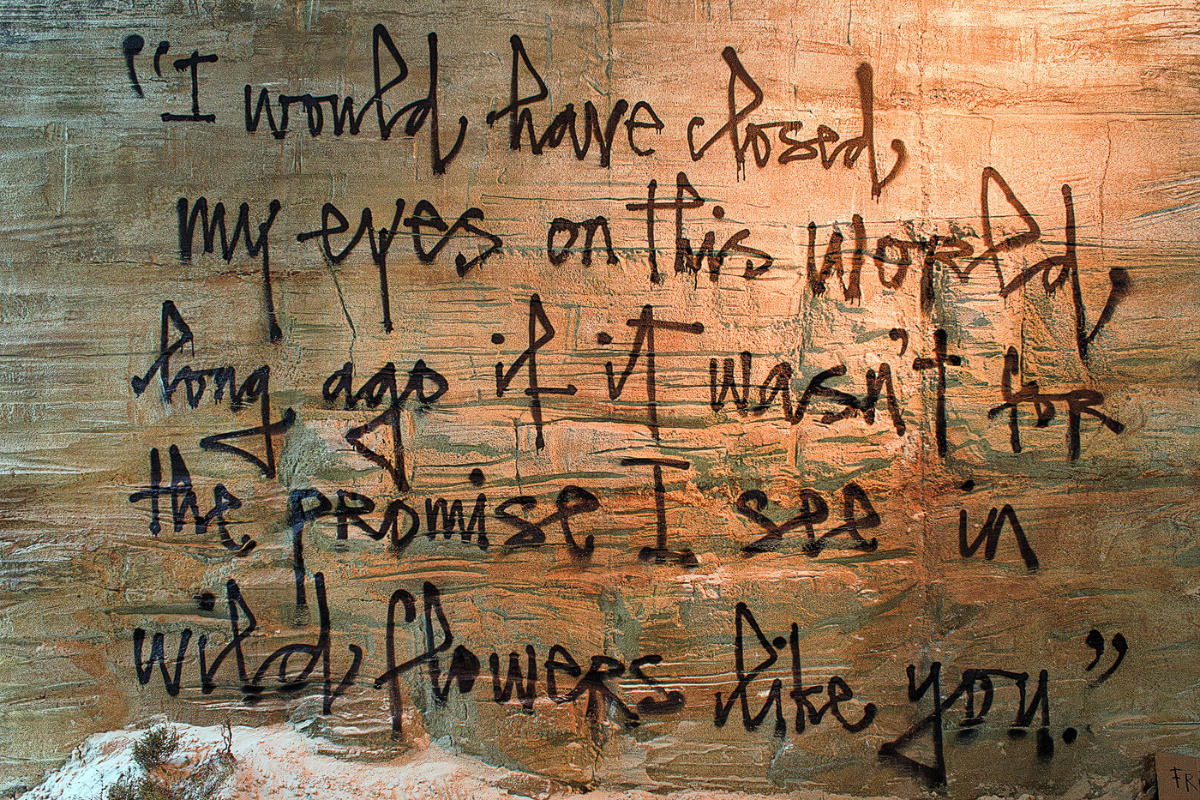 “I would have closed
my eyes on this world
long ago if it wasn't for
the promise I see in
wild flowers like you.”
FR